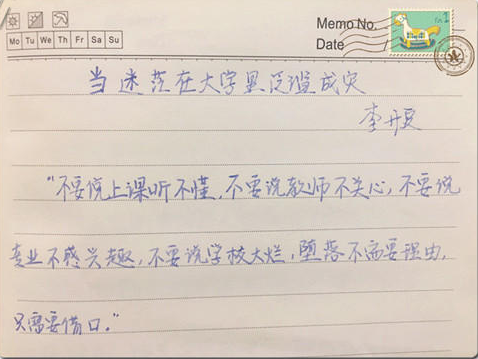 Memo No.
Mo Tu We Th Fr Sa Su
Date
当迷茫在大学里泛滥成灾
李开复
“不要说上课听不懂,不要说教师不关心,不要说
专业不感兴趣,不要说学校太烂,堕落不需要理由,
只需要借口。”